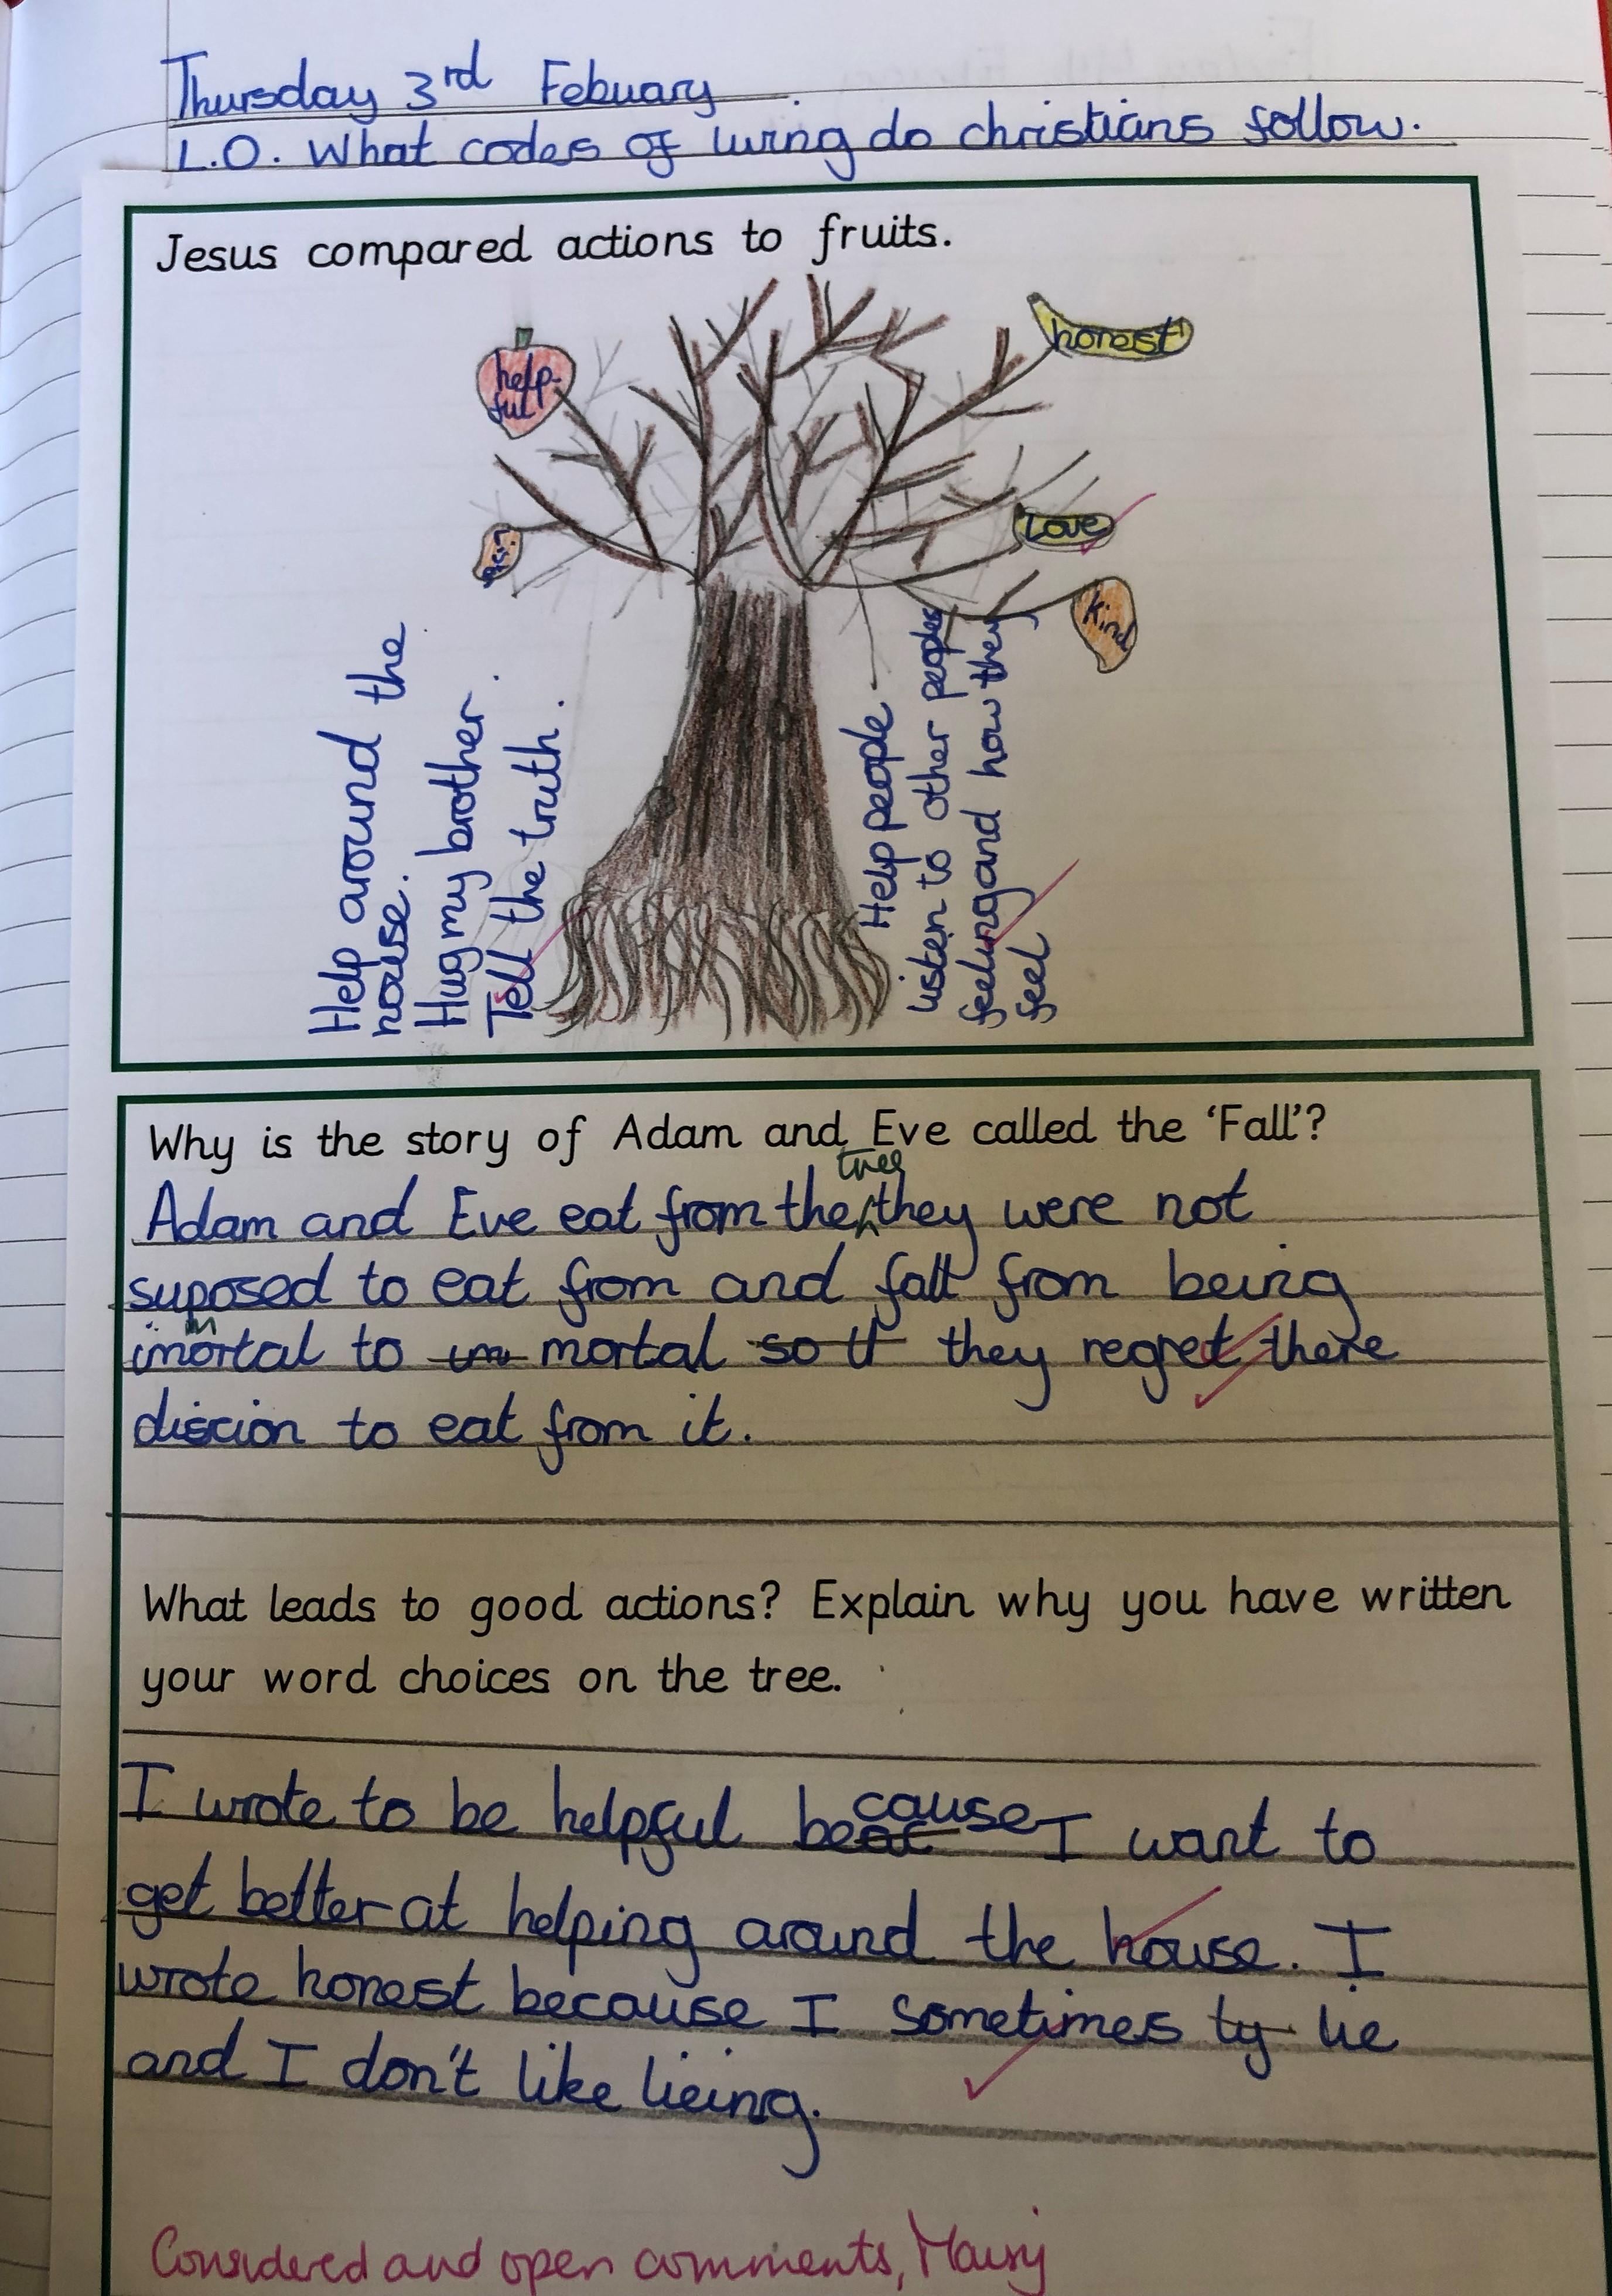 Thursday 3rd Febuary
L.O. What codes of living do christians follow.
Jesus compared actions to fruits.
help-
ful
honest
Love
Kind
Help around the
house.
Hug my brother.
Tell the truth.
Help people
listen to other peoples
feeling and how they
feel
Why is the story of Adam and Eve called the ‘Fall’?
tree
Adam and Eve eat from the they were not
suposed to eat from and fall from being
m
imortal to im mortal so it they regret there
discion to eat from it.
What leads to good actions? Explain why you have written
your word choices on the tree.
cause
I wrote to be helpful becac I want to
get better at helping around the house. I
wrote honest because I sometimes ty lie
and I don't like lieing.
Considered and open comments, Maisy